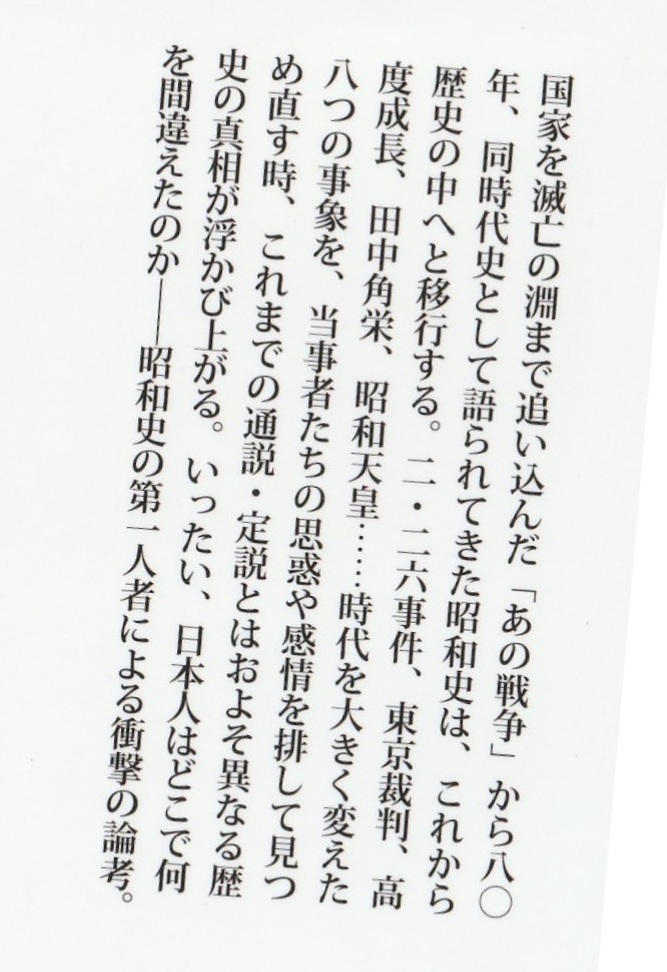 国家を滅亡の淵まで追い込んだ「あの戦争」から八〇
年、同時代史として語られてきた昭和史は、これから
歴史の中へと移行する。二・二六事件、東京裁判、高
度成長、田中角栄、昭和天皇……時代を大きく変えた
八つの事象を、当事者たちの思惑や感情を排して見つ
め直す時、これまでの通説・定説とはおよそ異なる歴
史の真相が浮かび上がる。いったい、日本人はどこで何
を間違えたのか――昭和史の第一人者による衝撃の論考。